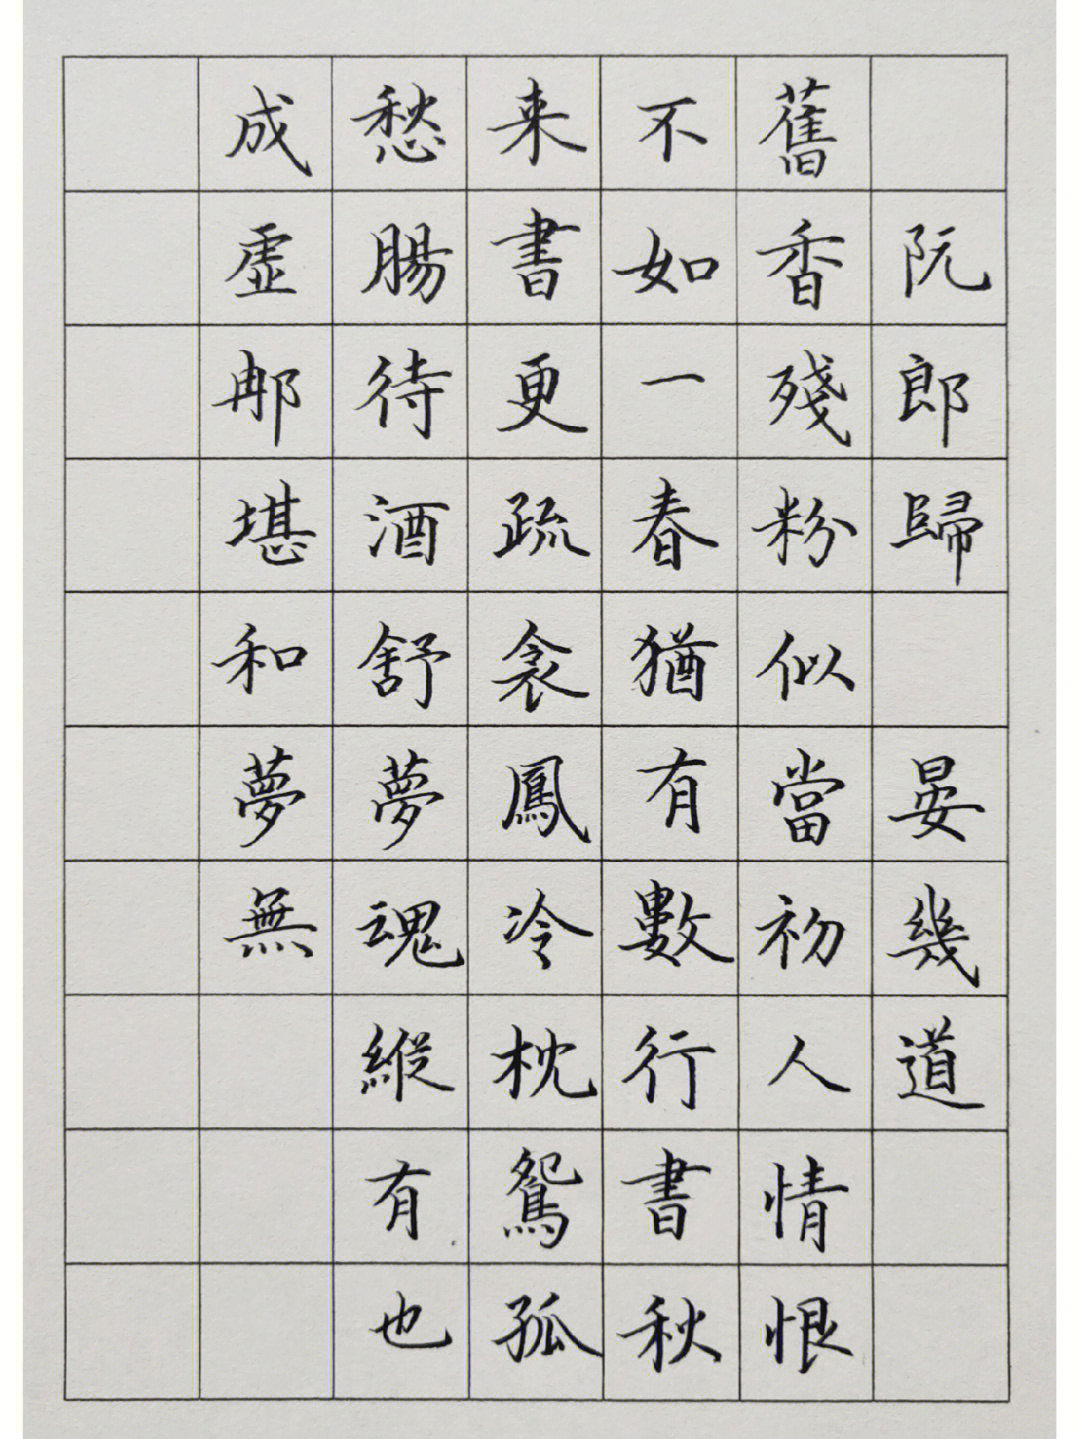 阮郎歸 晏幾道
舊香殘粉似當初人情恨
不如一春猶有數行書秋
来書更疏衾鳳冷枕鴛孤
愁腸待酒舒夢魂縱有也
成虛那堪和夢無